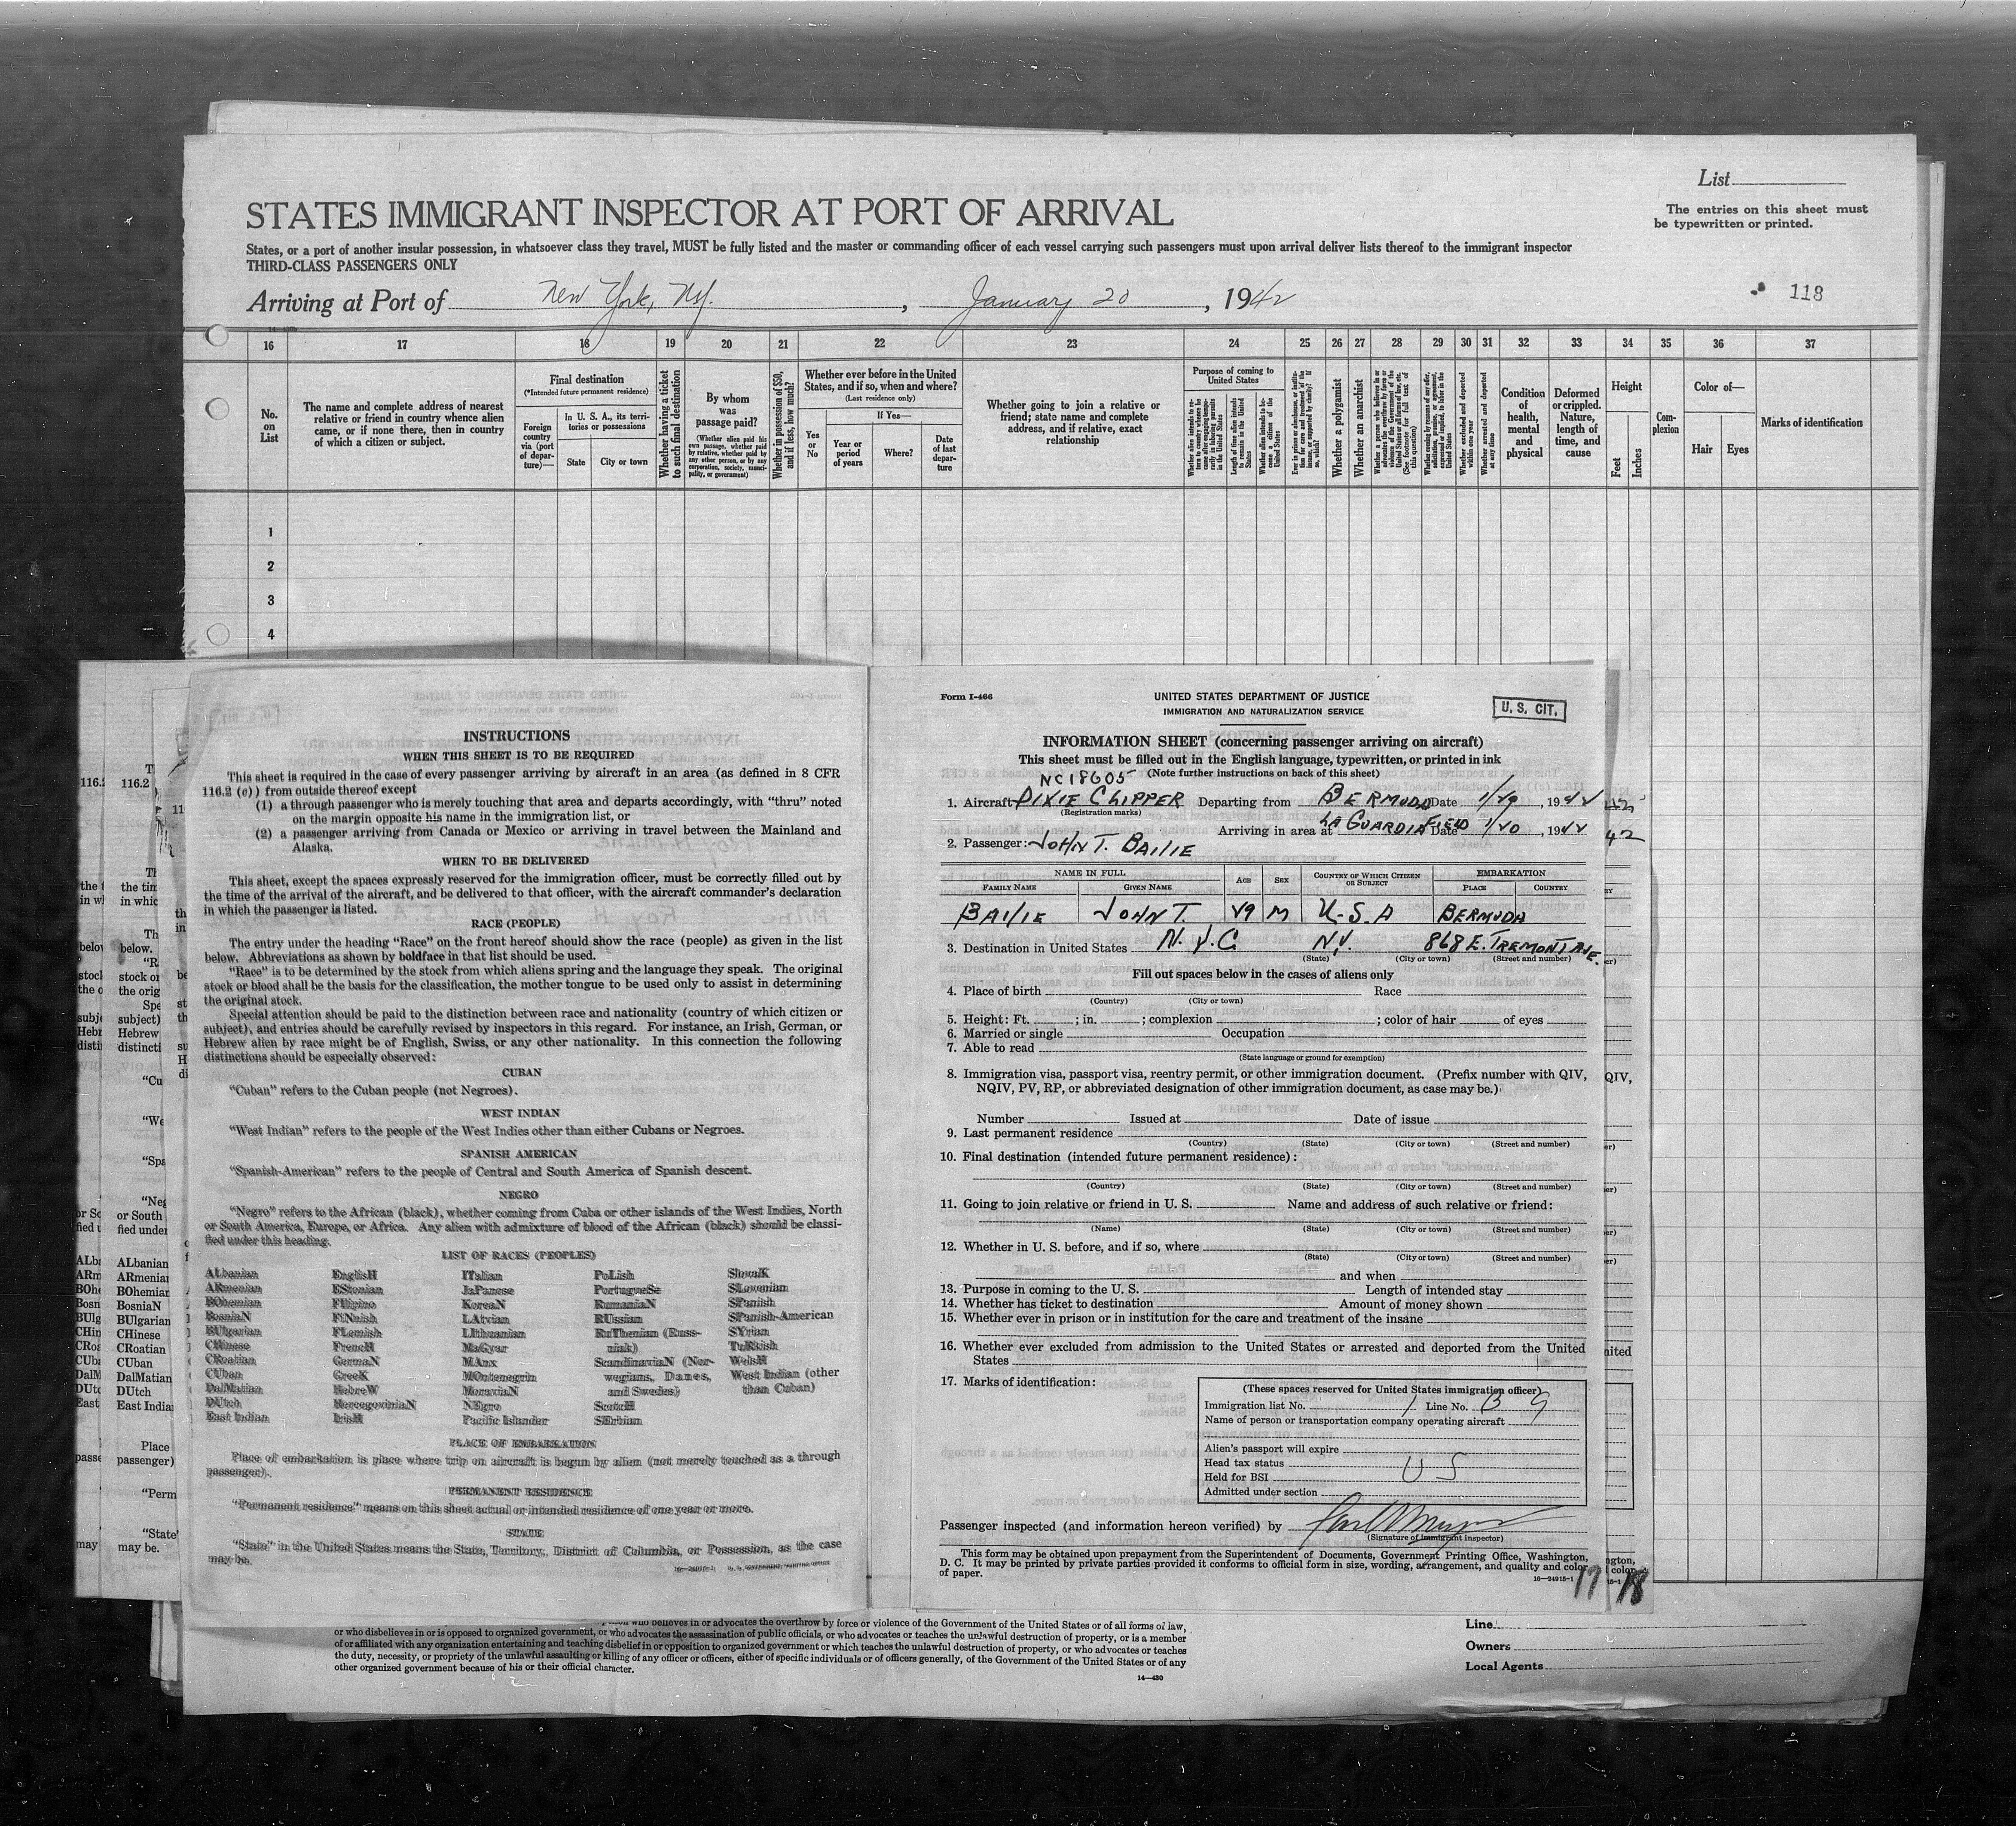 List
STATES IMMIGRANT INSPECTOR AT PORT OF ARRIVAL
The entries on this sheet must
be typewritten or printed.
States, or a port of another insular possession, in whatsoever class they travel, MUST be fully listed and the master or commanding officer of each vessel carrying such passengers must upon arrival deliver lists thereof to the immigrant inspector
THIRD-CLASS PASSENGERS ONLY
Arriving at Port of New York, NY. , January 20 , 1942
118
16 17 18 19 20 21 22 23 24 25 26 27 28 29 30 31 32 33 34 35 36 37
No. on List
The name and complete address of nearest
relative or friend in country whence alien
came, or if none there, then in country
of which a citizen or subject.
Final destination
(*Intended future permanent residence)
Foreign country via (port of departure)—
In U. S. A., its territories or possessions
State
City or town
Whether having a ticket to such final destination
By whom was passage paid?
(Whether alien paid his own passage, whether paid by relative, whether paid by any other person, or by any corporation, society, municipality, or government)
Whether in possession of $50, and if less, how much?
Whether ever before in the United
States, and if so, when and where?
(Last residence only)
Yes or No
If Yes—
Year or period of years
Where?
Date of last departure
Whether going to join a relative or
friend; state name and complete
address, and if relative, exact
relationship
Purpose of coming to
United States
Length of time alien intends to remain in the United States
Whether a polygamist
Whether an anarchist
Whether excluded and deported within one year
Whether arrested and deported at any time
Condition of health, mental and physical
Deformed or crippled. Nature, length of time, and cause
Height
Feet
Inches
Complexion
Color of—
Hair
Eyes
Marks of identification
1
2
3
4
INSTRUCTIONS
WHEN THIS SHEET IS TO BE REQUIRED
This sheet is required in the case of every passenger arriving by aircraft in an area (as defined in 8 CFR
116.2 (e)) from outside thereof except
(1) a through passenger who is merely touching that area and departs accordingly, with "thru" noted
on the margin opposite his name in the immigration list, or
(2) a passenger arriving from Canada or Mexico or arriving in travel between the Mainland and
Alaska.
WHEN TO BE DELIVERED
This sheet, except the spaces expressly reserved for the immigration officer, must be correctly filled out by
the time of the arrival of the aircraft, and be delivered to that officer, with the aircraft commander's declaration
in which the passenger is listed.
RACE (PEOPLE)
The entry under the heading "Race" on the front hereof should show the race (people) as given in the list
below. Abbreviations as shown by boldface in that list should be used.
"Race" is to be determined by the stock from which aliens spring and the language they speak. The original
stock or blood shall be the basis for the classification, the mother tongue to be used only to assist in determining
the original stock.
Special attention should be paid to the distinction between race and nationality (country of which citizen or
subject), and entries should be carefully revised by inspectors in this regard. For instance, an Irish, German, or
Hebrew alien by race might be of English, Swiss, or any other nationality. In this connection the following
distinctions should be especially observed:
CUBAN
"Cuban" refers to the Cuban people (not Negroes).
WEST INDIAN
"West Indian" refers to the people of the West Indies other than either Cubans or Negroes.
SPANISH AMERICAN
"Spanish-American" refers to the people of Central and South America of Spanish descent.
NEGRO
"Negro" refers to the African (black), whether coming from Cuba or other islands of the West Indies, North
or South America, Europe, or Africa. Any alien with admixture of blood of the African (black) should be classi-
fied under this heading.
LIST OF RACES (PEOPLES)
ALbanian EnglisH ITalian PoLish SlovaK
ARmenian EStonian JaPanese PortugueSe SLovenian
BOhemian FIlipino KoreaN RumaniaN SPanish
BosniaN FiNnish LAtvian RUssian SPanish-American
BUlgarian FLemish LIthuanian RuThenian (Russ- SYrian
CHinese FrencH MaGyar niak) TuRkish
CRoatian GermaN MAnx ScandinaviaN (Nor- WelsH
CUban GreeK MOntenegrin wegians, Danes, West Indian (other
DalMatian HebreW MoraviaN and Swedes) than Cuban)
DUtch HercegoviniaN NEgro ScotcH
East Indian IrisH Pacific Islander SErbian
PLACE OF EMBARKATION
Place of embarkation is place where trip on aircraft is begun by alien (not merely touched as a through
passenger).
PERMANENT RESIDENCE
"Permanent residence" means on this sheet actual or intended residence of one year or more.
STATE
"State" in the United States means the State, Territory, District of Columbia, or Possession, as the case
may be.
Form I-466
UNITED STATES DEPARTMENT OF JUSTICE
IMMIGRATION AND NATURALIZATION SERVICE
U. S. CIT.
INFORMATION SHEET (concerning passenger arriving on aircraft)
This sheet must be filled out in the English language, typewritten, or printed in ink
(Note further instructions on back of this sheet)
NC18605
1. Aircraft DIXIE CLIPPER Departing from BERMUDA Date 1/19, 1942
(Registration marks)
Arriving in area at LA GUARDIA FIELD Date 1/20, 1942
2. Passenger: JOHN T. BAILIE
NAME IN FULL AGE SEX COUNTRY OF WHICH CITIZEN OR SUBJECT EMBARKATION
FAMILY NAME GIVEN NAME PLACE COUNTRY
BAILIE JOHN T. 49 M U.S.A BERMUDA
3. Destination in United States N.Y.C. N.Y. 868 E. TREMONT AVE.
(State) (City or town) (Street and number)
Fill out spaces below in the cases of aliens only
4. Place of birth Race
(Country) (City or town)
5. Height: Ft. ; in. ; complexion ; color of hair of eyes
6. Married or single Occupation
7. Able to read
(State language or ground for exemption)
8. Immigration visa, passport visa, reentry permit, or other immigration document. (Prefix number with QIV,
NQIV, PV, RP, or abbreviated designation of other immigration document, as case may be.)
Number Issued at Date of issue
9. Last permanent residence
(Country) (State) (City or town) (Street and number)
10. Final destination (intended future permanent residence):
(Country) (State) (City or town) (Street and number)
11. Going to join relative or friend in U. S. Name and address of such relative or friend:
(Name) (State) (City or town) (Street and number)
12. Whether in U. S. before, and if so, where
(State) (City or town) (Street and number)
and when
13. Purpose in coming to the U. S. Length of intended stay
14. Whether has ticket to destination Amount of money shown
15. Whether ever in prison or in institution for the care and treatment of the insane
16. Whether ever excluded from admission to the United States or arrested and deported from the United
States
17. Marks of identification:
(These spaces reserved for United States immigration officer)
Immigration list No. 1 Line No.
Name of person or transportation company operating aircraft
Alien's passport will expire
Head tax status U S
Held for BSI
Admitted under section
Passenger inspected (and information hereon verified) by
(Signature of immigrant inspector)
This form may be obtained upon prepayment from the Superintendent of Documents, Government Printing Office, Washington,
D. C. It may be printed by private parties provided it conforms to official form in size, wording, arrangement, and quality and color
of paper.
16—24915-1
17 18
who believes in or advocates the overthrow by force or violence of the Government of the United States or of all forms of law,
or who disbelieves in or is opposed to organized government, or who advocates the assassination of public officials, or who advocates or teaches the unlawful destruction of property, or is a member
of or affiliated with any organization entertaining and teaching disbelief in or opposition to organized government or which teaches the unlawful destruction of property, or who advocates or teaches
the duty, necessity, or propriety of the unlawful assaulting or killing of any officer or officers, either of specific individuals or of officers generally, of the Government of the United States or of any
other organized government because of his or their official character.
14—430
Line
Owners
Local Agents